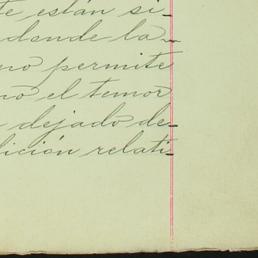 te están si-
dende la-
no permite
no el temor
dejado de-
dición relati-